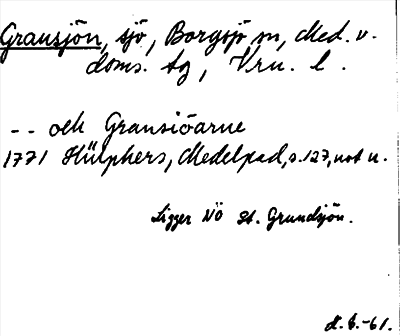 Gransjön, sjö, Borgsjö sn, Med. v.
doms. tg, Vrn. l.
-- och Gransiöarne
1771 Hülphers, Medelpad, s. 127, not n.
Ligger NÖ St. Grundsjön.
-61.